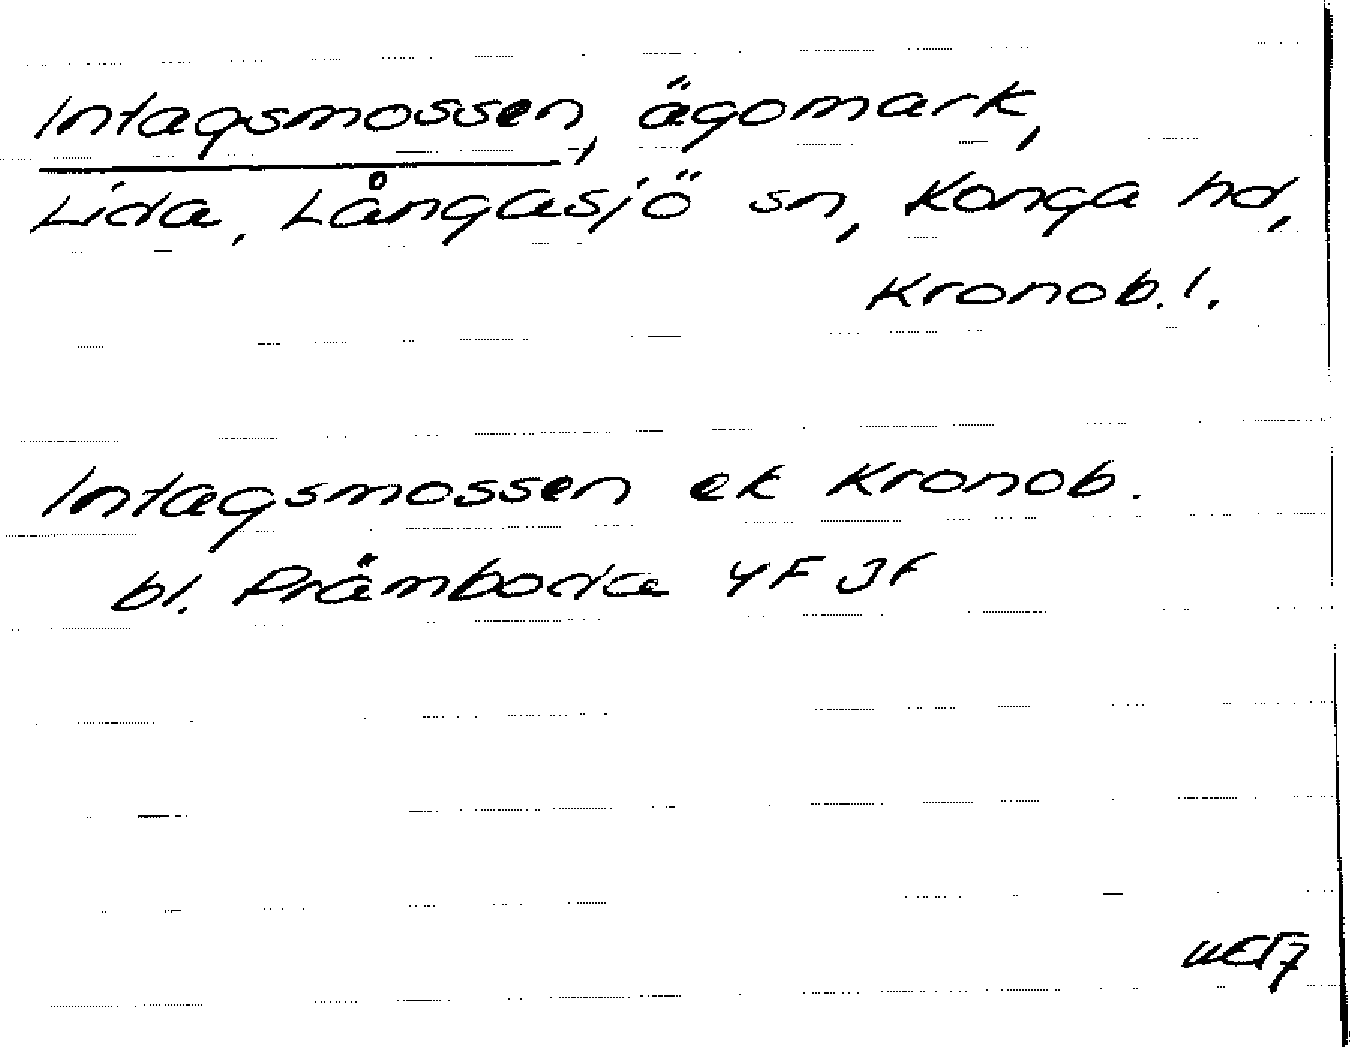 Intagsmossen, ägomark,
Lida, Långasjö sn, Konga hd,
Kronob. l.
Intagsmossen ek Kronob.
bl. Pråmboda 4F Jf